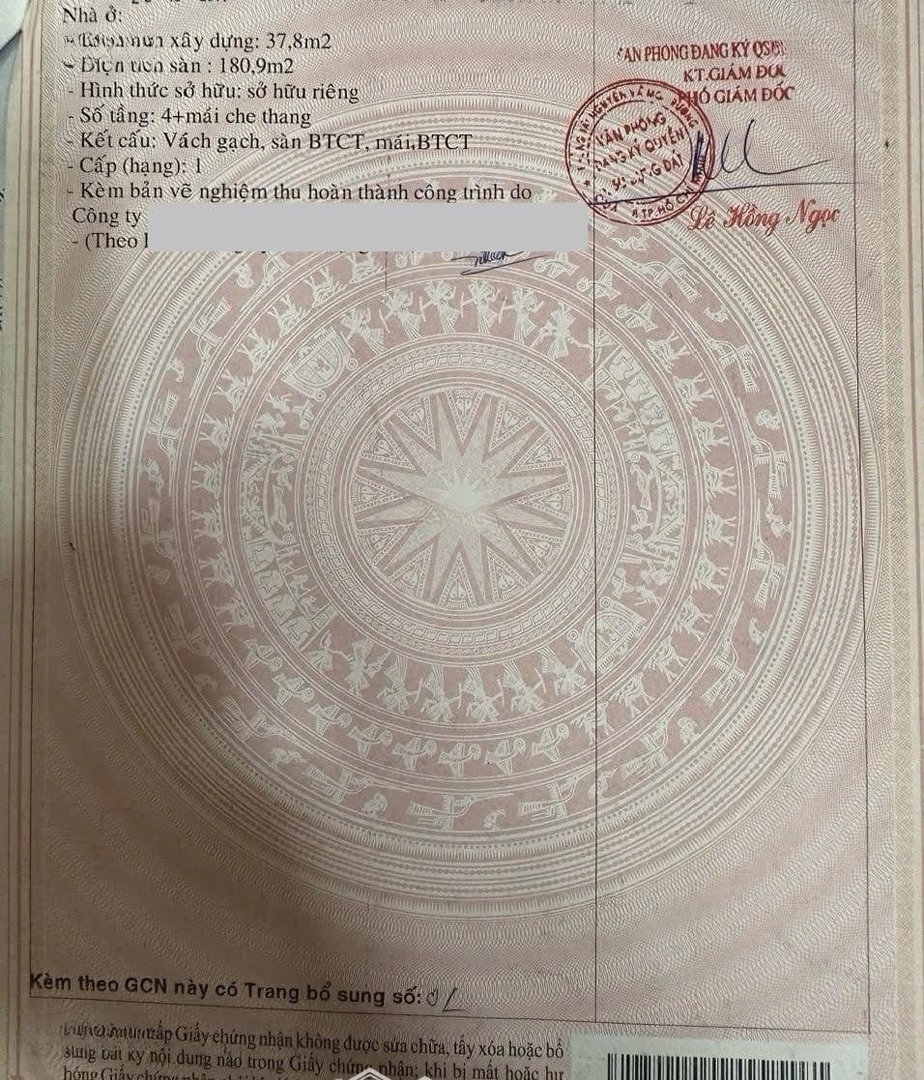 Nhà ở:
xây dựng: 37,8m2
sàn : 180,9m2
- Hình thức sở hữu: sở hữu riêng
- Số tầng: 4+mái che thang
- Kết cấu: Vách gạch, sàn BTCT, mái,BTCT
- Cấp (hạng): 1
- Kèm bản vẽ nghiệm thu hoàn thành công trình do
Công ty
- (Theo
PHÒNG ĐĂNG KÝ
KT.GIÁM
PHÓ GIÁM ĐỐC
VĂN PHÒNG
ĐĂNG KÝ QUYỀN
ĐẤT
TP.HỒ CHÍ
Lê Hồng Ngọc
Kèm theo GCN này có Trang bổ sung số: 01
Giấy chứng nhận không được sửa chữa, tẩy xóa hoặc bổ
sung bất kỳ nội dung nào trong Giấy chứng nhận; khi bị mất hoặc hư
hỏng Giấy chứng nhận